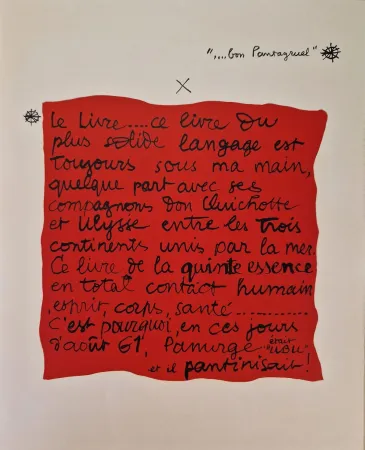 "....bon Pantagruel"
Le Livre....ce livre du
plus solide langage est
toujours sous ma main,
quelque part avec ses
compagnons Don Quichotte
et Ulysse entre les trois
continents unis par la mer.
Ce livre de la quinte essence
en total contact humain
,esprit, corps, santé............
C'est pourquoi, en ces jours
d'août 61, Panurge était "UBU"
et il pantinisait!